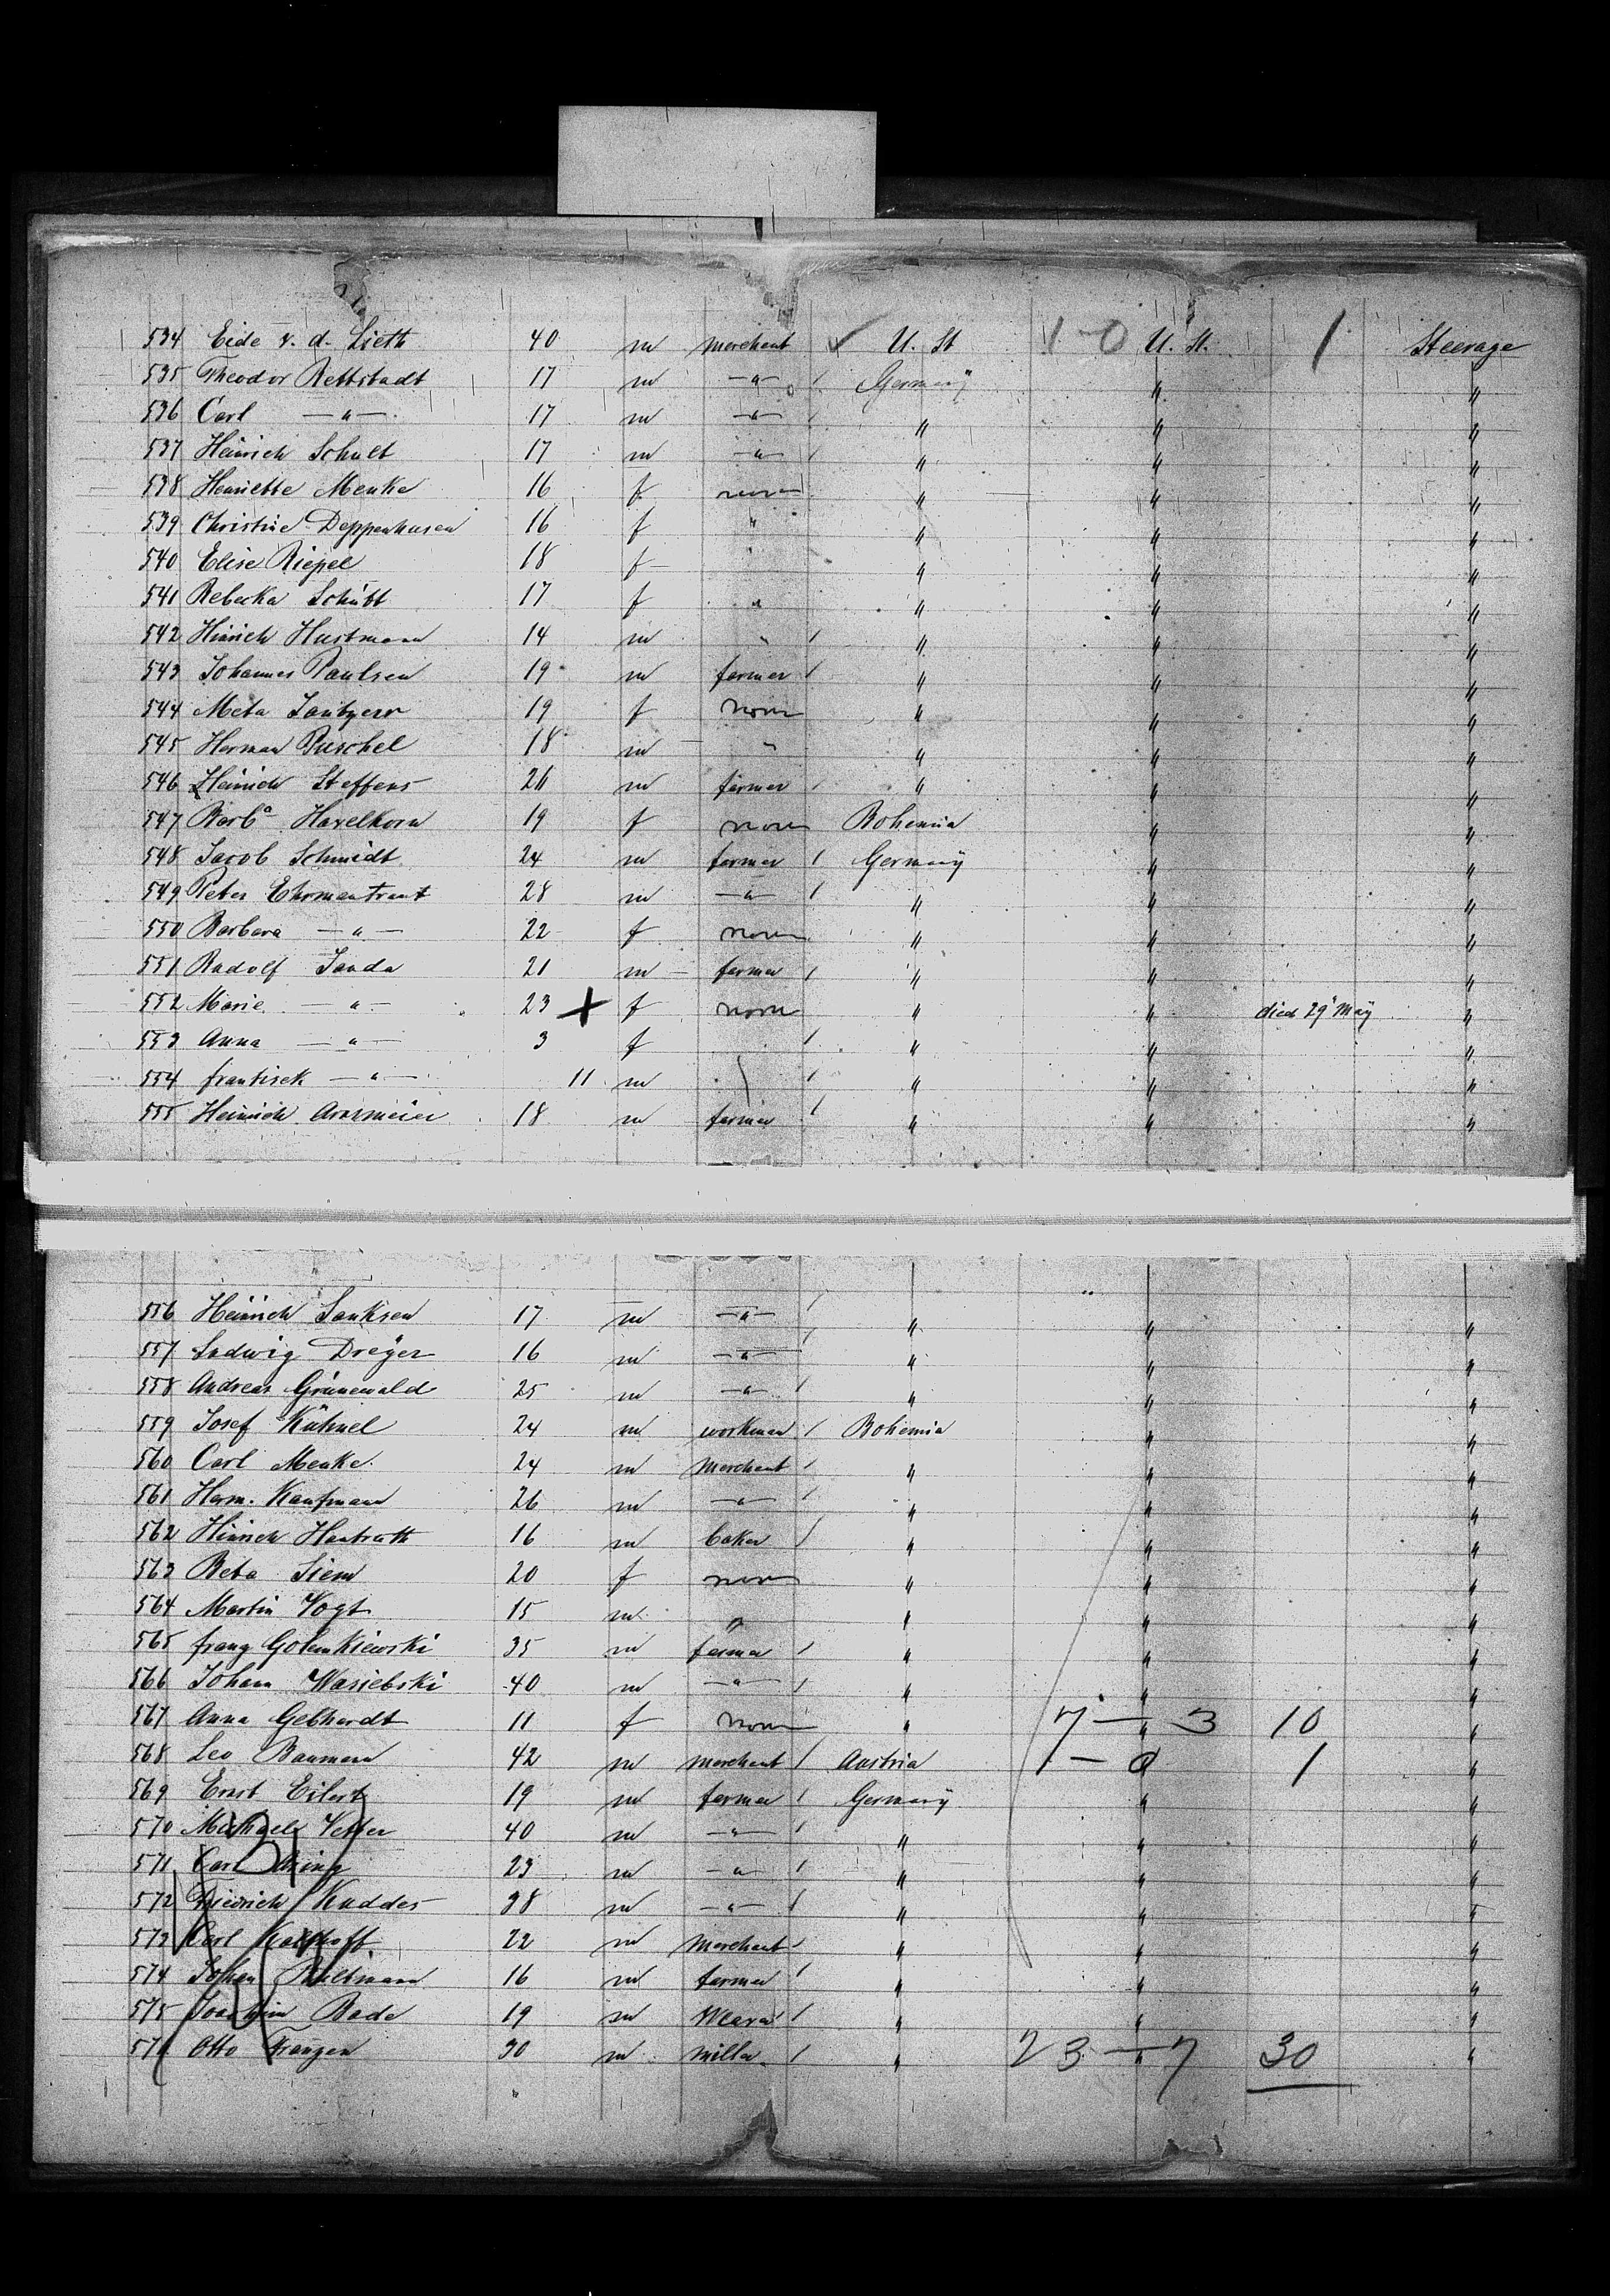 534 Eide v. d. Lieth 40 m merchant ✓ U. St 1-0 U. St. 1 Steerage
535 Theodor Rettstadt 17 m —"— / Germany " "
536 Carl —"— 17 m —"— / " " "
537 Heinrich Schult 17 m —"— / " " "
538 Henriette Menke 16 f none " " "
539 Christine Deppenhusen 16 f " " " "
540 Elise Riepel 18 f " " "
541 Rebecka Schütt 17 f " " " "
542 Hinrich Hustmann 14 m " / " " "
543 Johannes Paulsen 19 m farmer / " " "
544 Meta 19 f none " " "
545 Herman Puschel 18 m " " " "
546 Heinrich Steffens 26 m farmer / " " "
547 Barbᵃ Havelkorn 19 f none Bohemia " "
548 Jacob Schmidt 24 m farmer / Germany " "
549 Peter Ehrmantraut 28 m —"— / " " "
550 Barbara —"— 22 f none " " "
551 Rudolf Janda 21 m farmer / " " "
552 Marie —"— 23 + f none " " died 29 May "
553 Anna —"— 3 f / " " "
554 frantisek —"— 11 m / " " "
555 Heinrich 18 m farmer / " " "
556 Heinrich Janksen 17 m —"— / " " "
557 Ludwig Dreyer 16 m —"— / " " "
558 Andreas Grünewald 25 m —"— / " " "
559 Josef Kühnel 24 m workman / Bohemia " "
560 Carl Menke 24 m merchant / " " "
561 Herm. Kaufmann 26 m —"— / " " "
562 Hinrich 16 m baker / " " "
563 Reta Siem 20 f none " " "
564 Martin Vogt 15 m " " " "
565 franz Golemkiewski 35 m farmer / " " "
566 Johann Wasiebski 40 m —"— / " " "
567 Anna Gebhardt 11 f none " 7 — 3 10 "
568 Leo Baumann 42 m merchant / Austria 1 — 0 1 "
569 Ernst Eilert 19 m farmer / Germany " "
570 Michael Vetter 40 m —"— / " " "
571 Carl 23 m —"— / " " "
572 Friedrich Kaddes 38 m —"— / " " "
573 Carl Kalthoff 22 m merchant / " " "
574 Johan 16 m farmer / " " "
575 Joachim Bade 19 m / " " "
576 Otto Franzen 30 m miller / " 23 — 7 30 "